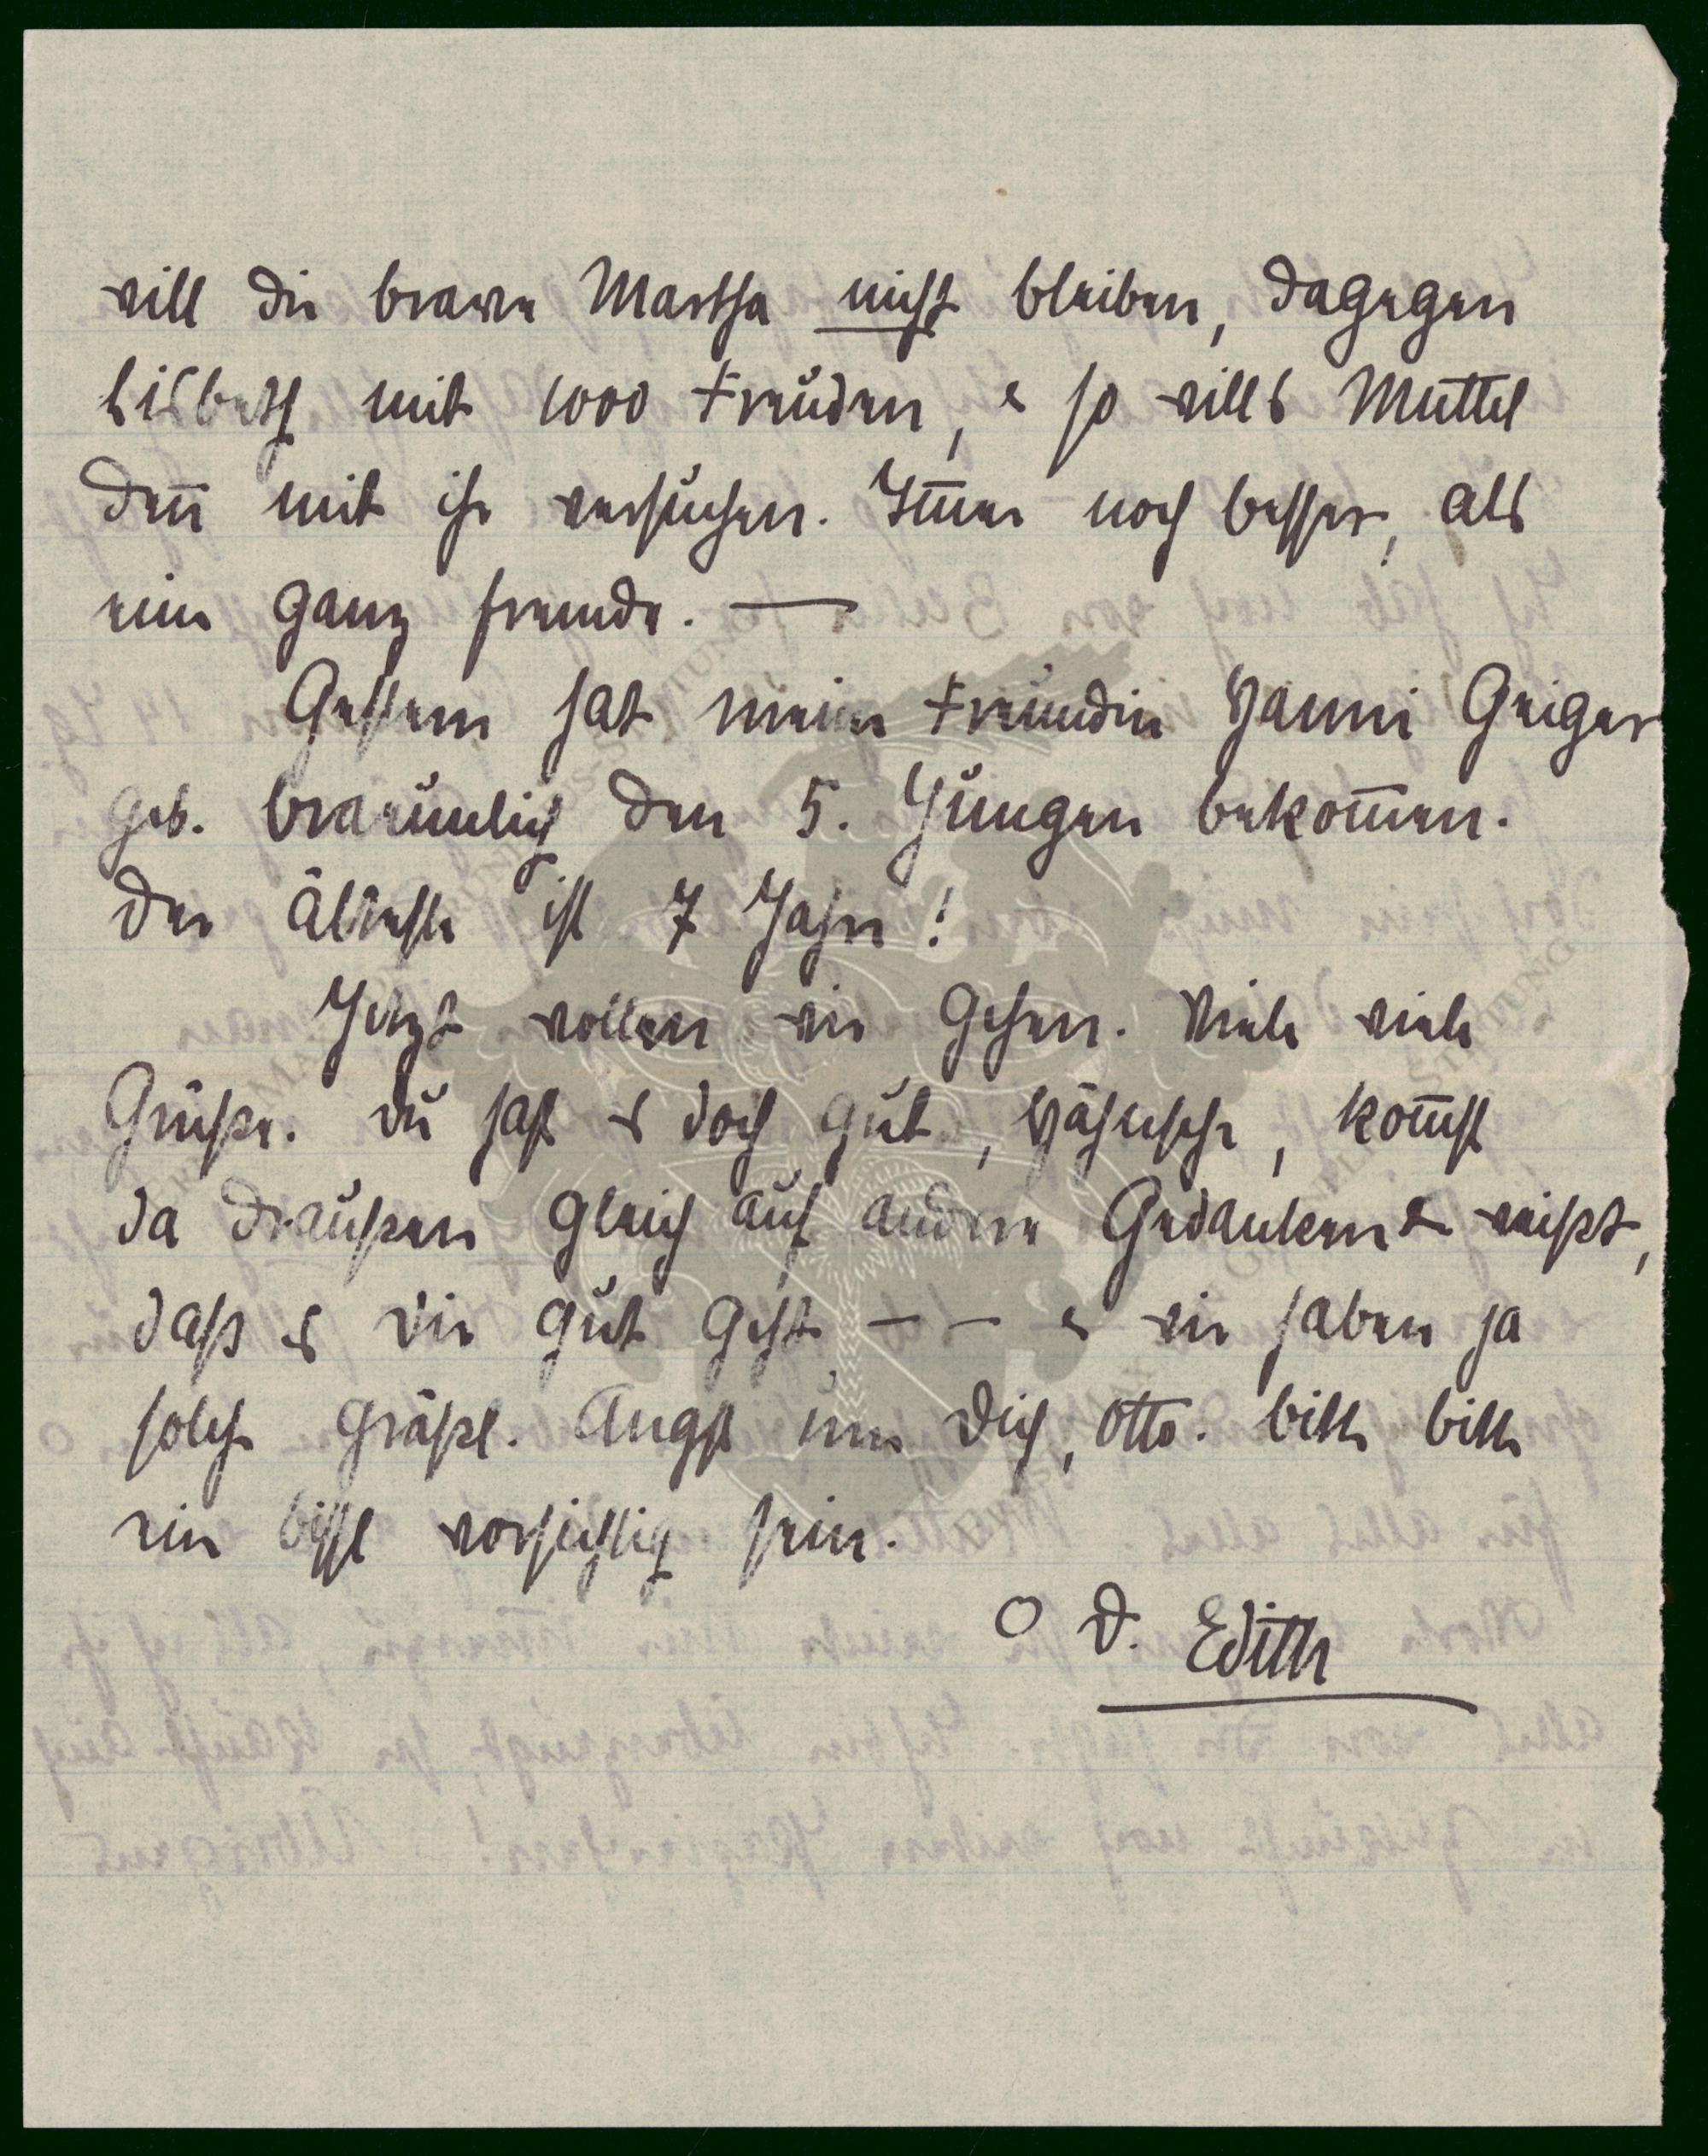 will die brave Martha nicht bleiben, dagegen
Lisbeth mit 1000 Freuden, & so wills Muttel
den̅ mit ihr versuchen. Im̅er noch besser, als
eine ganz fremde. —
Gestern hat meine Freundin Hanni Geiger
geb. Bräunlich den 5. Jungen bekom̅en.
Der Älteste ist 7 Jahre!
Jetzt wollen wir gehen. Viele viele
Grüße. Du hast es doch gut, , kom̅st
da draußen gleich auf andere Gedanken & weißt,
daß es Dir gut geht — — & wir haben ja
solche gräßl. Angst um Dich, Otto. Bitte bitte
ein bissl vorsichtig sein.
O D. Edith